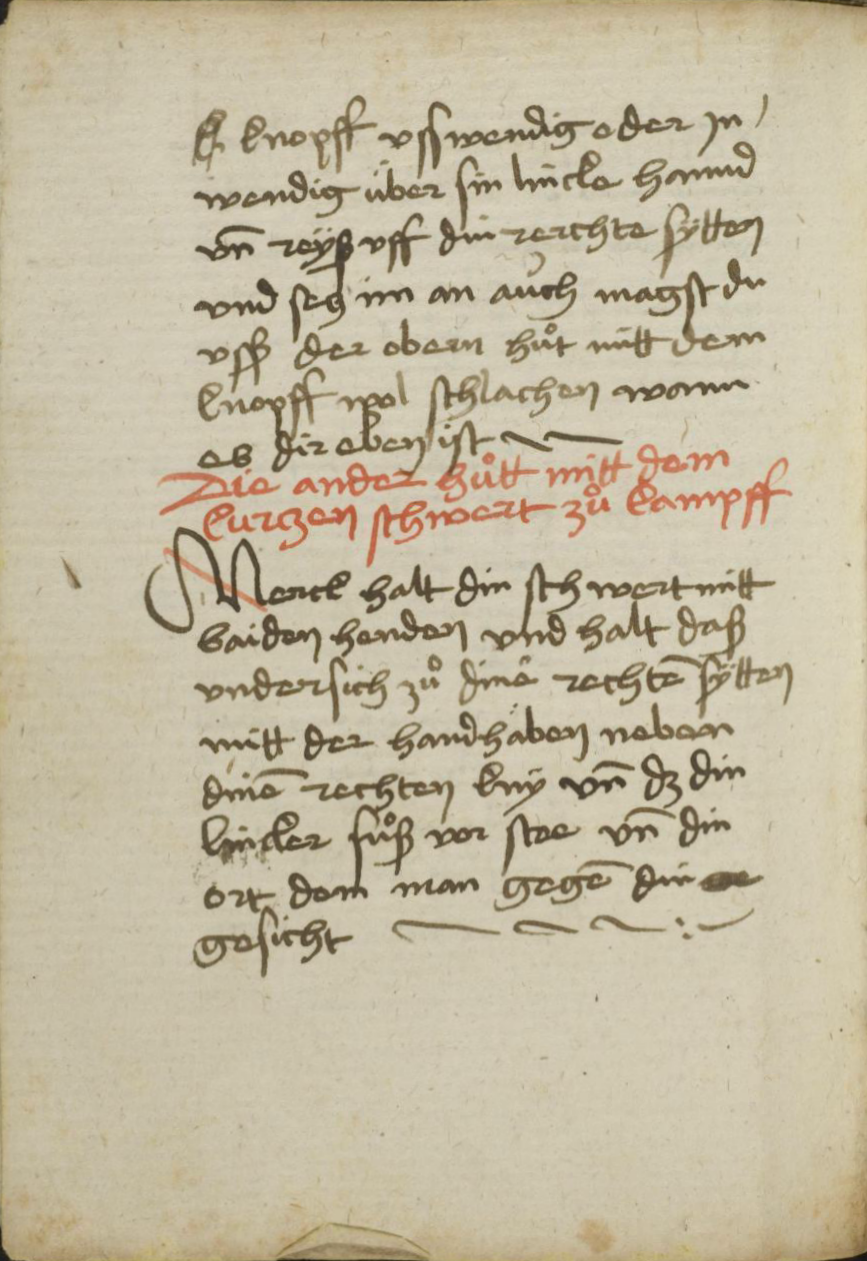 knopff vsswendig oder In
wendig über sin lincke hannd
vn̄ reyß vff din rerchte sÿtten
vnd setz im an aúch magst du
vssß der obern hůt mitt dem
knopff wol schlachen wann
es dir eben ist
Die ander hůtt mitt dem
kurczen schwert zů kampff
Merck halt din schwert mitt
baiden henden vnd halt daß
vndersich zů dinē rechtē sÿtten
mitt der handhäben neben
dinē rechten kny vn̄ dz din
lincker fůß vor stee vn̄ din
ort dem man gegē din
gesicht